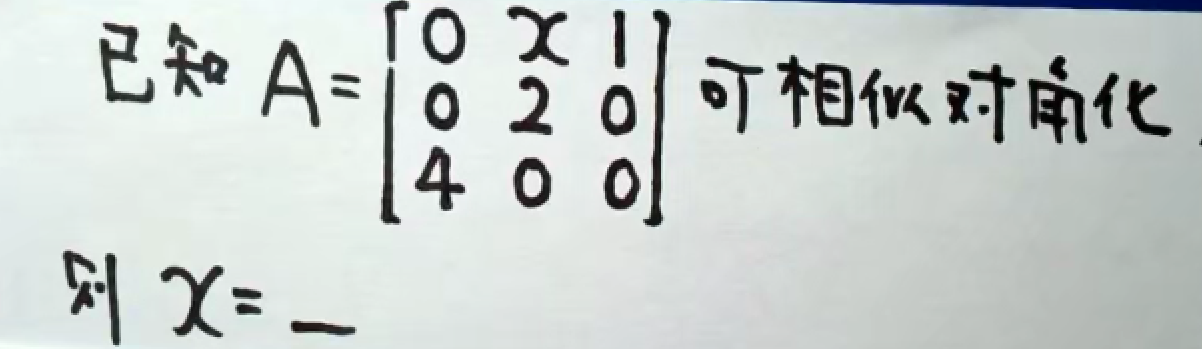 已知 A=[0 x 1
0 2 0
4 0 0] 可相似对角化
则 x=_